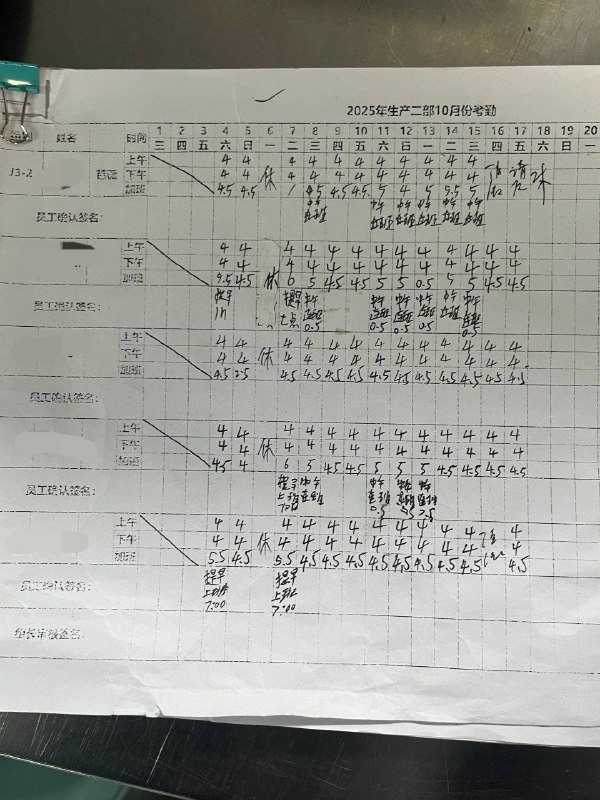 2025年生产二部10月份考勤
姓名 时间 1 2 3 4 5 6 7 8 9 10 11 12 13 14 15 16 17 18 19 20
三 四 五 六 日 一 二 三 四 五 六 日 一 二 三 四 五 六 日 一
上午 4 4 4 4 4 4 4 4 4 4 4
J3-2 下午 4 4 休 4 4 4 4 4 4 4 4 4 请 休
加班 4.5 4.5 4.5 4.5 5 4 5 5.5 5
员工确认签名: 中午 直班 中午 直班 中午 直班 中午 直班 中午 直班
上午 4 4 4 4 4 4 4 4 4 4 4 4 4
下午 4 4 休 4 4 4 4 4 4 4 4 4 4 4
加班 5.5 4.5 6 5 4.5 4.5 5 5 0.5 5 5 4.5 4.5
员工确认签名: 提早 1H 提早 七点 中午 直班 0.5 中午 直班 0.5 中午 直班 0.5 中午 直班 0.5 中午 直班 中午 直班 0.5
上午 4 4 4 4 4 4 4 4 4 4 4 4 4
下午 4 4 休 4 4 4 4 4 4 4 4 4 4 4
加班 4.5 2.5 4.5 4.5 4.5 4.5 4.5 4.5 4.5 4.5 4.5 4.5 4.5
员工确认签名:
上午 4 4 4 4 4 4 4 4 4 4 4 4 4
下午 4 4 休 4 4 4 4 4 4 4 4 4 4 4
加班 4.5 4 6 5 4.5 4.5 5 5 5 4.5 4.5 4.5 4.5
员工确认签名: 提早 上班 7:00 中午 直班 中午 直班 0.5 中午 直班 中午 直班
上午 4 4 4 4 4 4 4 4 4 4 4 4
下午 4 4 休 4 4 4 4 4 4 4 4 4 4
加班 5.5 4.5 5.5 4.5 4.5 4.5 4.5 4.5 4.5 4.5 4.5 4.5
员工确认签名: 提早 上班 7:00 提早 上班 7:00
组长审核签名: